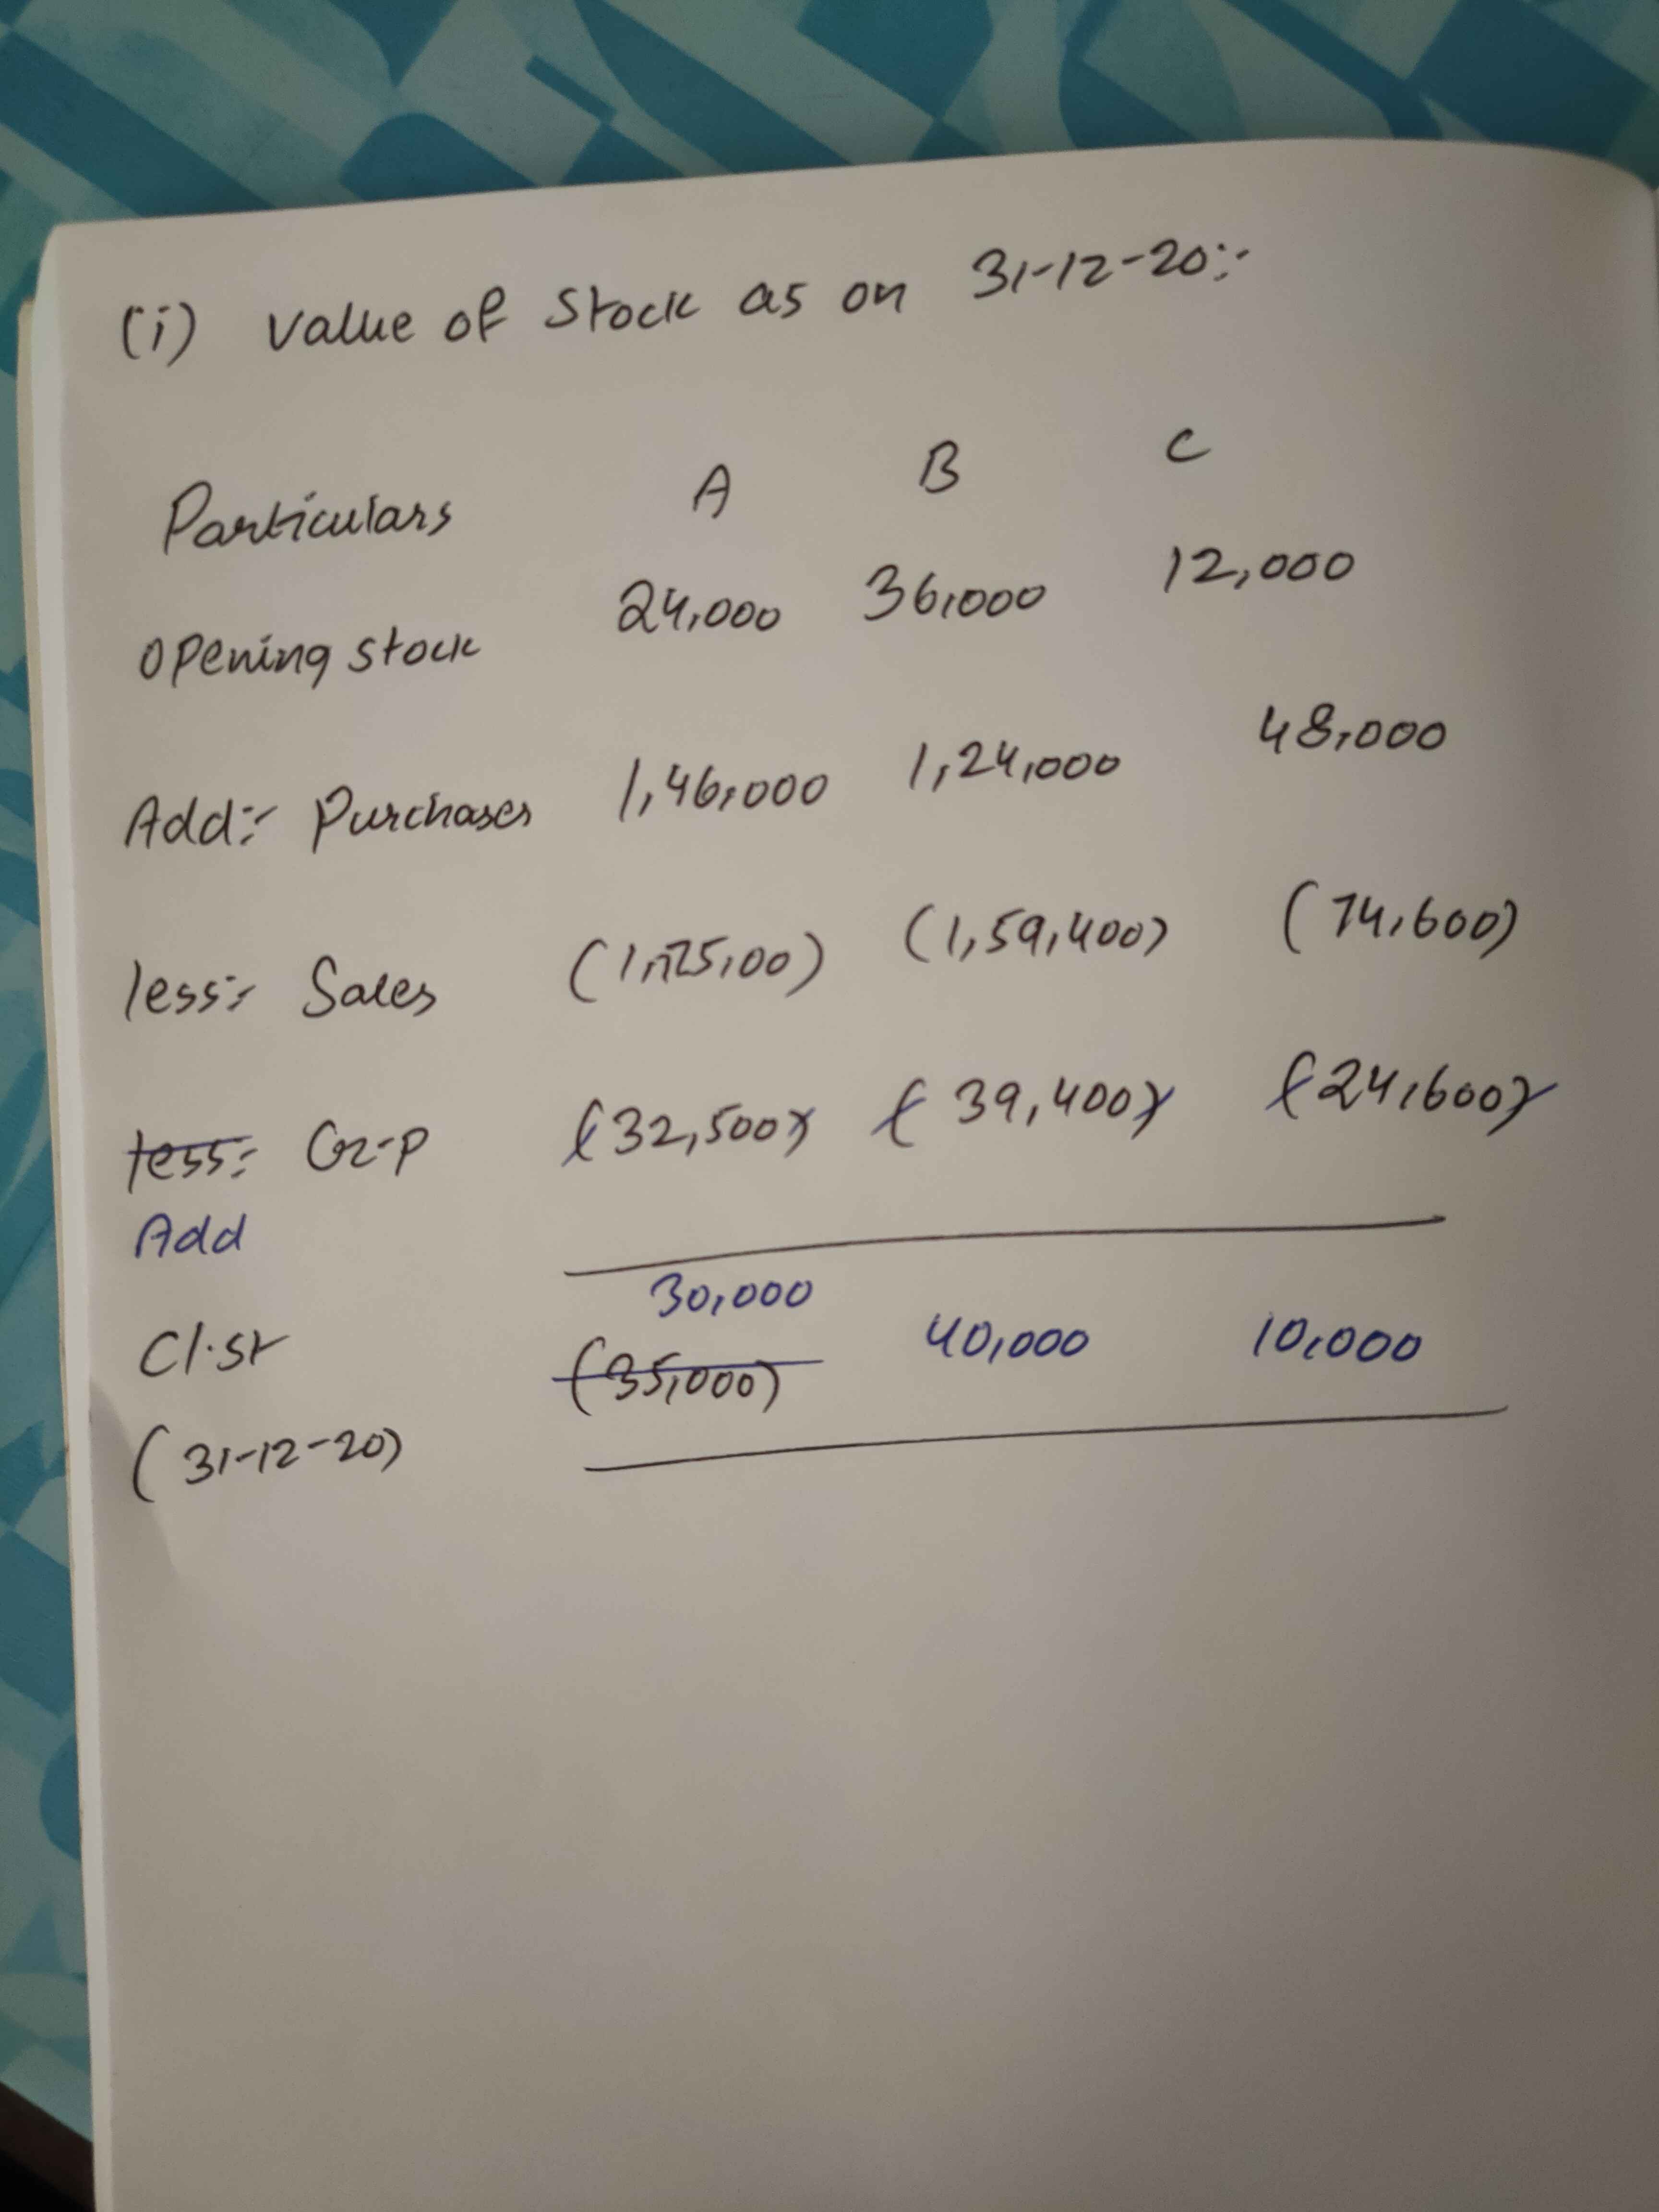 (i) Value of Stock as on 31-12-20:-
Particulars A B C
Opening stock 24,000 36,000 12,000
Add:- Purchases 1,46,000 1,24,000 48,000
less:- Sales (1,59,400) (74,600)
less:- G-P (32,500) (39,400) (24,600)
Add
30,000
Cl.st (35,000) 40,000 10,000
(31-12-20)